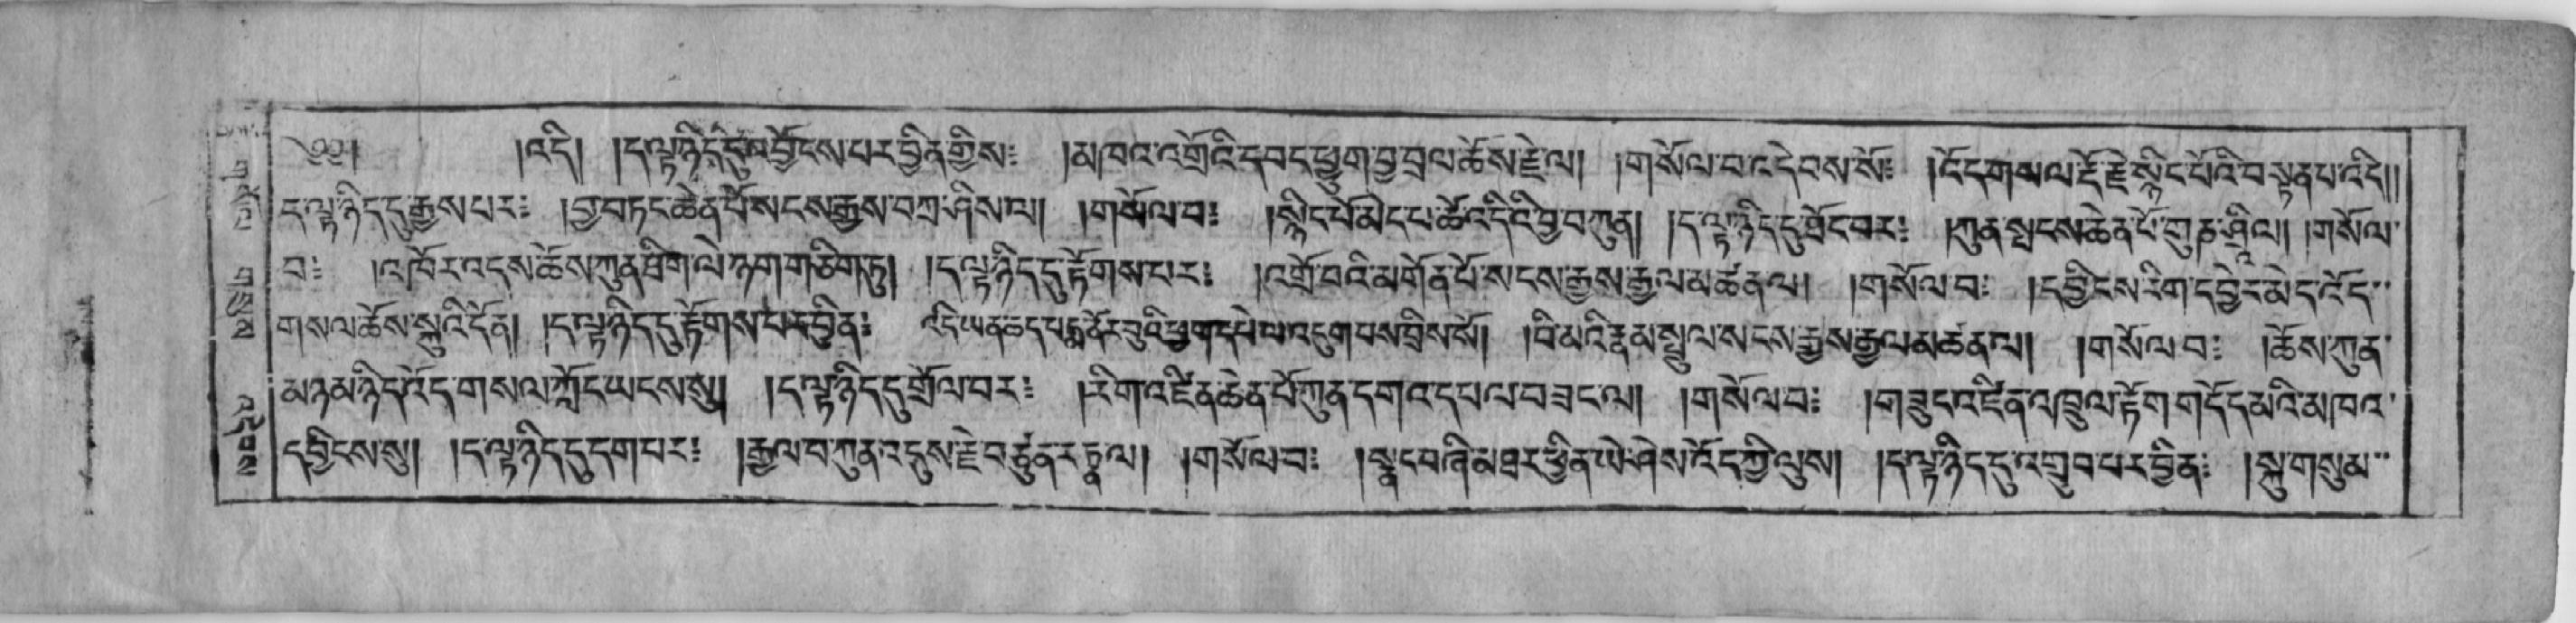 ༄༅།། །འདི། །ད་ལྟ་ཉིད་དུ་བྱོངས་པར་བྱིན་གྱིས༔ །མཁའ་འགྲོའི་དབང་ཕྱུག་བྱ་བྲལ་ཆོས་རྗེ་ལ། །གསོལ་བ་འདེབས་སོ༔ །འོད་གསལ་རྡོ་རྗེ་སྙིང་པོའི་བསྟན་པ་འདི།།
ད་ལྟ་ཉིད་དུ་རྒྱས་པར༔ །བྱ་བཏང་ཆེན་པོ་སངས་རྒྱས་བཀྲ་ཤིས་ལ། །གསོལ་བ༔ །སྙིང་པོ་མེད་པ་ཚེ་འདིའི་བྱ་བ་ཀུན། །ད་ལྟ་ཉིད་དུ་ཐོང་བར༔ །ཀུན་སྤངས་ཆེན་པོ་གུ་ཎ་ཤྲཱི་ལ། །གསོལ་
བ༔ །འཁོར་འདས་ཆོས་ཀུན་ཐིག་ལེ་ཉག་གཅིག་ཏུ། །ད་ལྟ་ཉིད་དུ་རྟོགས་པར༔ །འགྲོ་བའི་མགོན་པོ་སངས་རྒྱས་རྒྱལ་མཚན་ལ། །གསོལ་བ༔ །དབྱིངས་རིག་དབྱེར་མེད་འོད་
གསལ་ཆོས་སྐུའི་དོན། །ད་ལྟ་ཉིད་དུ་རྟོགས་པར་བྱིན༔ འདི་ཡན་ཆད་པདྨ་ནོར་བུའི་ཕྱག་དཔེ་ལ་འདུག་པས་བྲིས་སོ། །བི་མའི་རྣམ་སྤྲུལ་སངས་རྒྱས་རྒྱལ་མཚན་ལ། །གསོལ་བ༔ །ཆོས་ཀུན་
མཉམ་ཉིད་འོད་གསལ་ཀློང་ཡངས་སུ། །ད་ལྟ་ཉིད་དུ་གྲོལ་བར༔ །རིག་འཛིན་ཆེན་པོ་ཀུན་དགའ་དཔལ་བཟང་ལ། །གསོལ་བ༔ །གཟུང་འཛིན་འཁྲུལ་རྟོག་གདོད་མའི་མཁའ་
དབྱིངས་སུ། །ད་ལྟ་ཉིད་དུ་དག་པར༔ །རྒྱལ་བ་ཀུན་འདུས་རྗེ་བཙུན་རཏྣ་ལ། །གསོལ་བ༔ །སྣང་བཞི་མཐར་ཕྱིན་ཡེ་ཤེས་འོད་ཀྱི་ལུས། །ད་ལྟ་ཉིད་དུ་འགྲུབ་པར་བྱིན༔ །སྐུ་གསུམ་